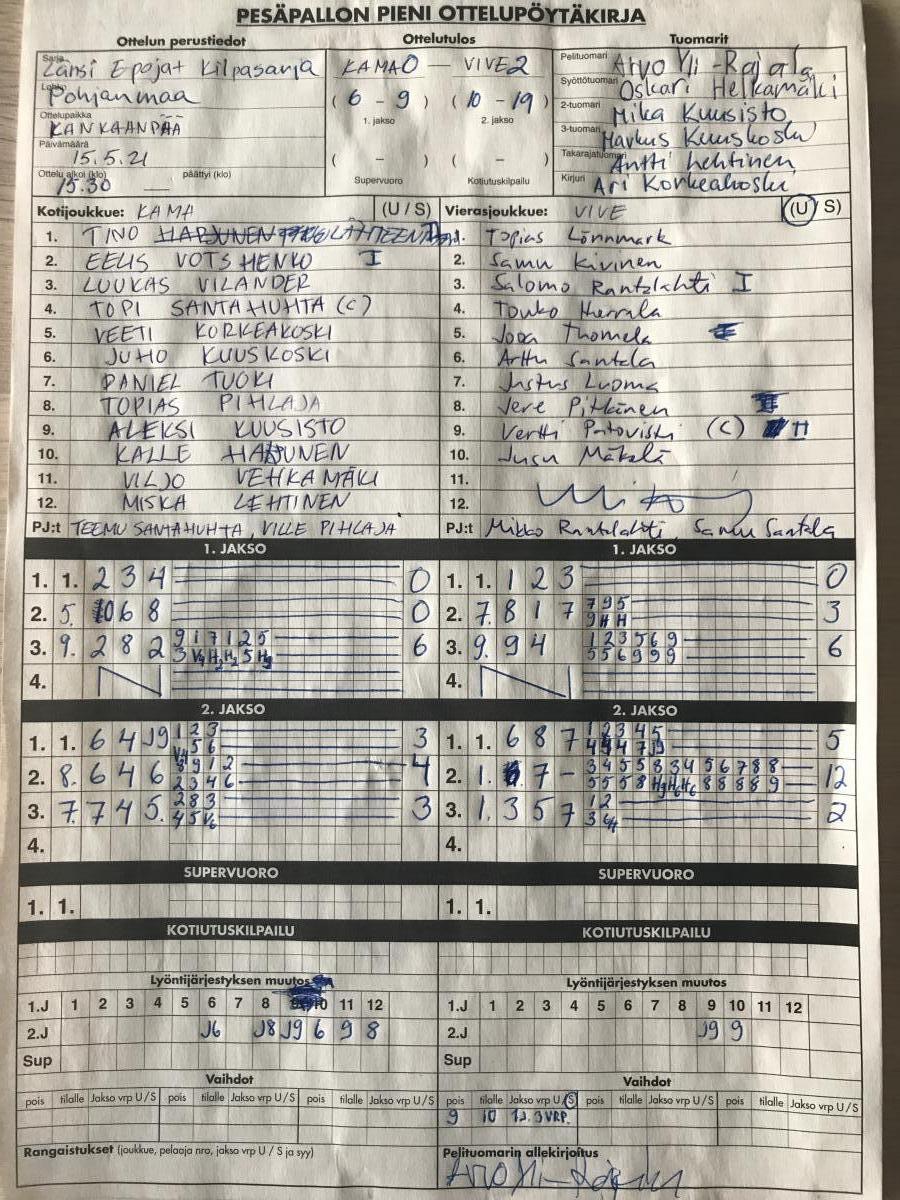 PESÄPALLON PIENI OTTELUPÖYTÄKIRJA
Ottelun perustiedot Ottelutulos Tuomarit
Sarja Länsi Epojat Kilpasarja KAMA 0 — VIVE 2 Pelituomari Arvo Yli-Rajala
Lohko Pohjanmaa ( 6 - 9 ) ( 10 - 19 ) Syöttötuomari Oskari Helkamäki
Ottelupaikka KANKAANPÄÄ 1. jakso 2. jakso 2-tuomari Mika Kuusisto
Päivämäärä 15.5.21 3-tuomari Markus Kuuskoski
( - ) ( - ) Takarajatuomari Antti Lehtinen
Ottelu alkoi (klo) 15.30 päättyi (klo) Supervuoro Kotiutuskilpailu Kirjuri Ari Korkeakoski
Kotijoukkue: KAMA (U / S) Vierasjoukkue: VIVE (U / S)
1. TINO 1. Topias Lönnmark
2. EELIS VOTSHENKO I 2. Samu Kivinen
3. LUUKAS VILANDER 3. Salomo Rantalahti I
4. TOPI SANTAHUHTA (C) 4. Touko Herrala
5. VEETI KORKEAKOSKI 5. Jooa Thomela
6. JUHO KUUSKOSKI 6. Arttu Santala
7. DANIEL TUOKI 7. Justus Luoma
8. TOPIAS PIHLAJA 8. Jere Pitkänen
9. ALEKSI KUUSISTO 9. Vertti (C) II
10. KALLE HARJUNEN 10. Jusu Mäkelä
11. VILJO VEHKAMÄKI 11.
12. MISKA LEHTINEN 12.
PJ:t TEEMU SANTAHUHTA, VILLE PIHLAJA PJ:t Mikko Rantalahti, Samu Santala
1. JAKSO 1. JAKSO
1. 1. 2 3 4 0 1. 1. 1 2 3 0
2. 5. 10 6 8 0 2. 7. 8 1 7 7 9 5 3
9 H H
3. 9. 2 8 2 9 1 7 1 2 5 6 3. 9. 9 4 1 2 3 5 6 9 6
5 5 6 9 9 9
4. 4.
2. JAKSO 2. JAKSO
1. 1. 6 4 J9 1 2 3 3 1. 1. 6 8 7 1 2 3 4 5 5
2. 8. 6 4 6 4 2. 1. 7 - 3 4 5 5 8 3 4 5 6 7 8 8 12
2 3 4 6
3. 7. 7 4 5. 2 8 3 3 3. 1. 3 5 7 1 2 2
4. 4.
SUPERVUORO SUPERVUORO
1. 1. 1. 1.
KOTIUTUSKILPAILU KOTIUTUSKILPAILU
Lyöntijärjestyksen muutos Lyöntijärjestyksen muutos
1.J 1 2 3 4 5 6 7 8 10 11 12 1.J 1 2 3 4 5 6 7 8 9 10 11 12
2.J J6 J8 J9 6 9 8 2.J J9 9
Sup Sup
Vaihdot Vaihdot
pois tilalle Jakso vrp U/S pois tilalle Jakso vrp U/S pois tilalle Jakso vrp U/S pois tilalle Jakso vrp U/S pois tilalle Jakso vrp U/S pois tilalle Jakso vrp U/S
9 10 3 VRP.
Rangaistukset (joukkue, pelaaja nro, jakso vrp U / S ja syy) Pelituomarin allekirjoitus